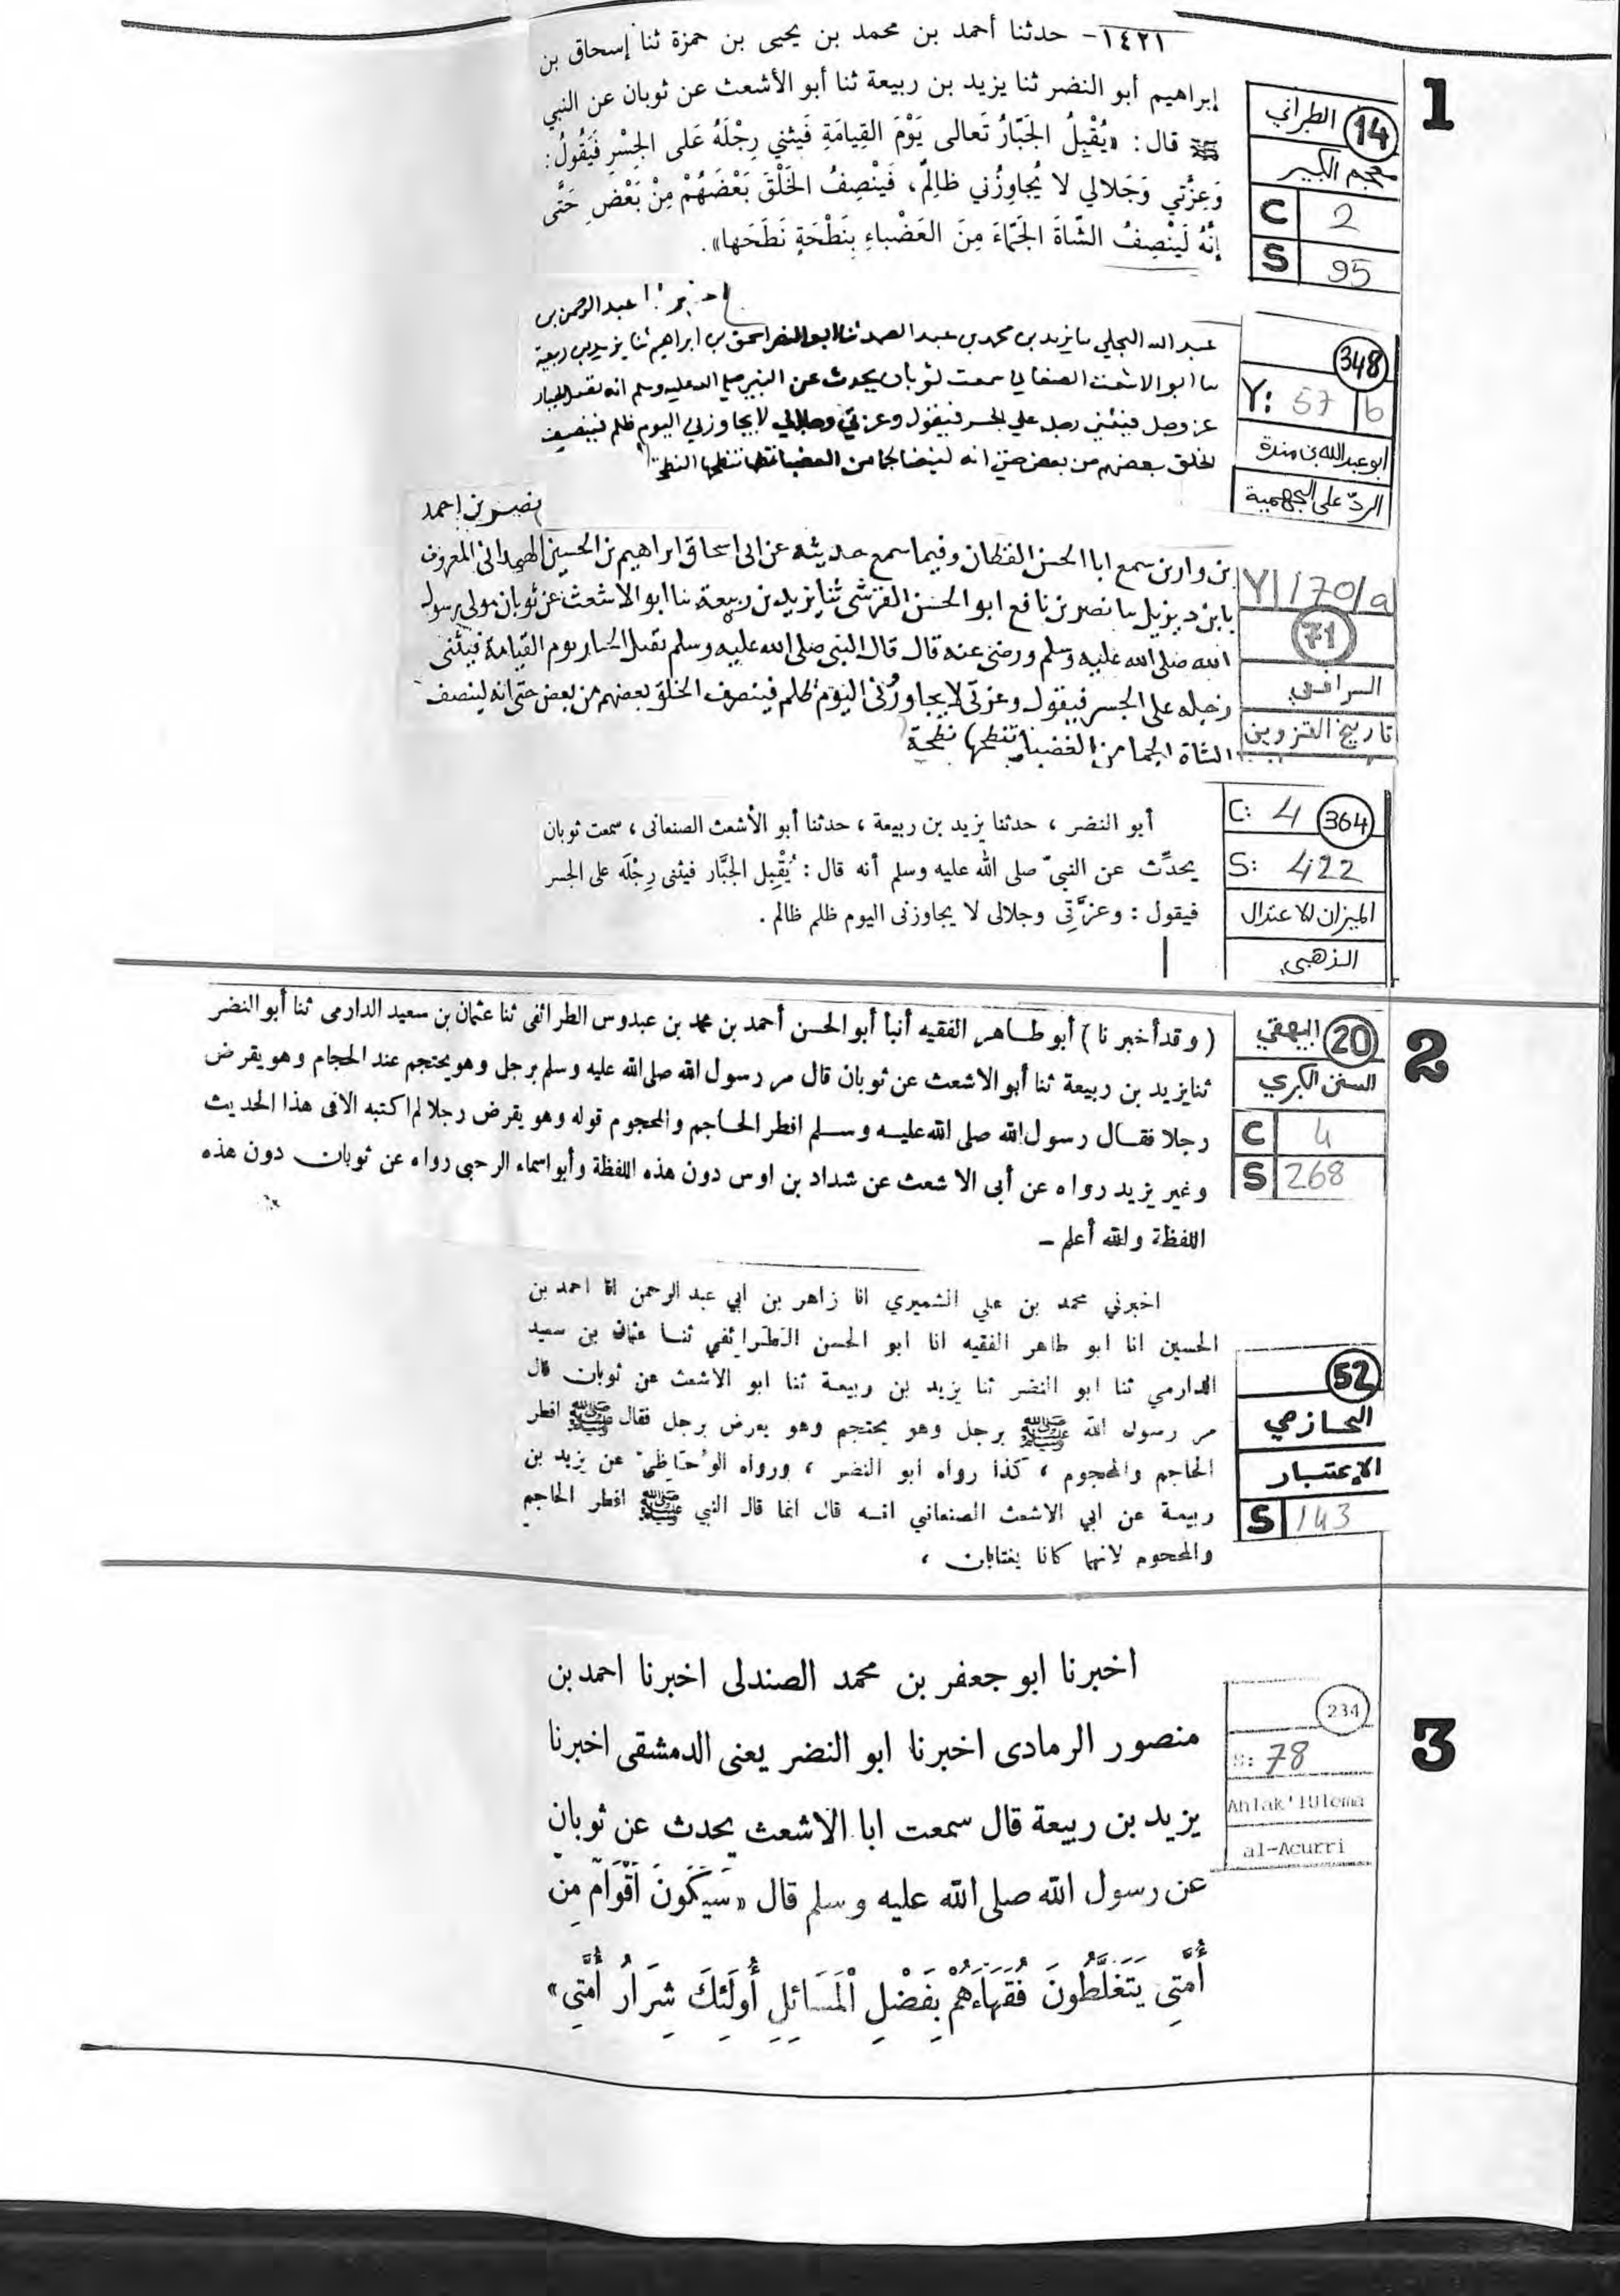 ١٤٢١- حدثنا أحمد بن محمد بن يحيى بن حمزة ثنا إسحاق بن
إبراهيم أبو النضر ثنا يزيد بن ربيعة ثنا أبو الأشعث عن ثوبان عن النبي
ﷺ قال: «يُقْبِلُ الجَبّارُ تَعالى يَوْمَ القِيامَةِ فَيثني رِجْلَهُ عَلى الجِسْرِ فَيَقُولُ:
وَعِزَّتي وَجَلالي لا يُجاوِزُني ظالِمٌ، فَيَنْصِفُ الخَلْقَ بَعْضَهُمْ مِنْ بَعْضٍ حَتَّى
إنَّهُ لَيَنْصِفُ الشّاةَ الجَمّاءَ مِنَ العَضْباءِ بِنَطْحَةٍ نَطَحَها».
1
14 الطبراني
معجم الكبير
C 2
S 95
اخبرنا عبد الرحمن بن
عبد الله البجلي ثنا يزيد بن محمد بن عبد الصمد ثنا ابو النضر اسحق بن ابراهيم ثنا يزيد بن ربيعة
ثنا ابو الاشعث الصنعاني سمعت ثوبان يحدث عن النبي صلى الله عليه وسلم انه يقبل الجبار
عز وجل فيثني رجله علي الجسر فيقول وعزتي وجلالي لا يجاوزني اليوم ظلم فينصف
الخلق بعضهم من بعض حتي انه
348
Y: 57 b
ابو عبد الله بن مندة
الردّ على الجهمية
نصر بن احمد
بن وارين سمع ابا الحسن القطان وفيما سمع حديثه عن ابى اسحاق ابراهيم بن الحسين الهمدانى المعروف
بابن ديزيل ثنا نصر بن نافع ابو الحسن القرشى ثنا يزيد بن ربيعة ثنا ابو الاشعث عن ثوبان مولى رسول
الله صلى الله عليه وسلم ورضى عنه قال قال النبى صلى الله عليه وسلم يقبل الجبار يوم القيامة فيثنى
رجله على الجسر فيقول وعزتى لا يجاوزنى اليوم ظلم فينصف الخلق بعضهم من بعض حتى انه لينصف
الشاة الجما من العضبا تنطحها نطحة
Y 170/a
71
الرافعي
تاريخ القزوين
أبو النضر ، حدثنا يزيد بن ربيعة ، حدثنا أبو الأشعث الصنعانى ، سمعت ثوبان
يحدِّث عن النبىّ صلى الله عليه وسلم أنه قال : يُقْبِل الجبَّار فيثنى رِجْلَه على الجسر
فيقول : وعزَّتِى وجلالى لا يجاوزنى اليوم ظلم ظالم .
C: 4 364
S: 422
الميزان للاعتدال
الذهبي
( وقد أخبرنا ) أبو طاهر الفقيه أنبأ أبو الحسن أحمد بن محمد بن عبدوس الطرائفى ثنا عثمان بن سعيد الدارمى ثنا أبو النضر
ثنا يزيد بن ربيعة ثنا أبو الاشعث عن ثوبان قال مر رسول الله صلى الله عليه وسلم برجل وهو يحتجم عند الحجام وهو يقرض
رجلا فقال رسول الله صلى الله عليه وسلم افطر الحاجم والمحجوم قوله وهو يقرض رجلا لم اكتبه الا فى هذا الحديث
وغير يزيد رواه عن أبى الاشعث عن شداد بن اوس دون هذه اللفظة وأبو اسماء الرحبى رواه عن ثوبان دون هذه
اللفظة والله أعلم -
2
20 البيهقي
السنن الكبري
C 4
S 268
اخبرني محمد بن علي الشميري انا زاهر بن ابي عبد الرحمن انا احمد بن
الحسين انا ابو طاهر الفقيه انا ابو الحسن الطرائفي ثنا عثمان بن سعيد
الدارمي ثنا ابو النضر ثنا يزيد بن ربيعة ثنا ابو الاشعث عن ثوبان قال
مر رسول الله ﷺ برجل وهو يحتجم وهو يعرض برجل فقال ﷺ افطر
الحاجم والمحجوم ، كذا رواه ابو النضر ، ورواه الوُحَاظِي عن يزيد بن
ربيعة عن ابي الاشعث الصنعاني انه قال انما قال النبي ﷺ افطر الحاجم
والمحجوم لانهما كانا يغتابان ،
52
الحازمي
الإعتبار
S 143
اخبرنا ابو جعفر بن محمد الصندلى اخبرنا احمد بن
منصور الرمادى اخبرنا ابو النضر يعنى الدمشقى اخبرنا
يزيد بن ربيعة قال سمعت ابا الاشعث يحدث عن ثوبان
عن رسول الله صلى الله عليه وسلم قال «سَيَكُونَ أَقْوَامٌ مِنْ
أُمَّتِى يَتَغَلَّطُونَ فُقَهَاءَهُمْ بِفَضْلِ الْمَسَائِلِ أُولَئِكَ شِرَارُ أُمَّتِي»
3
234
S: 78
Ahlak'lUlema
al-Acurri